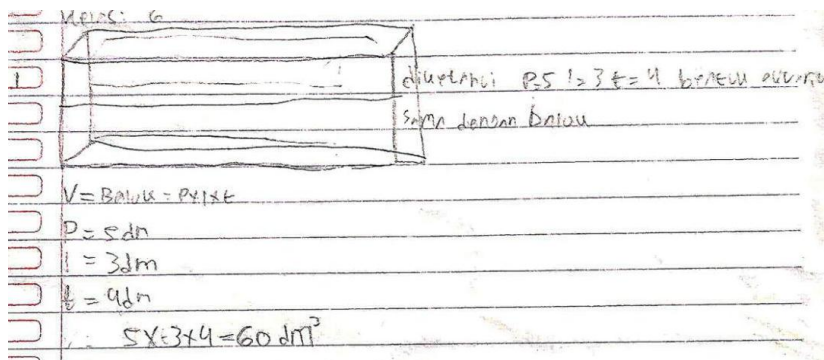 Kelas: 6
1
diketahui P=5 l=3 t=4 bentuk
sama dengan balou
V = Balok = PxIxt
P = 5dm
l = 3dm
t = 4dm
5x3x4=60 dm³